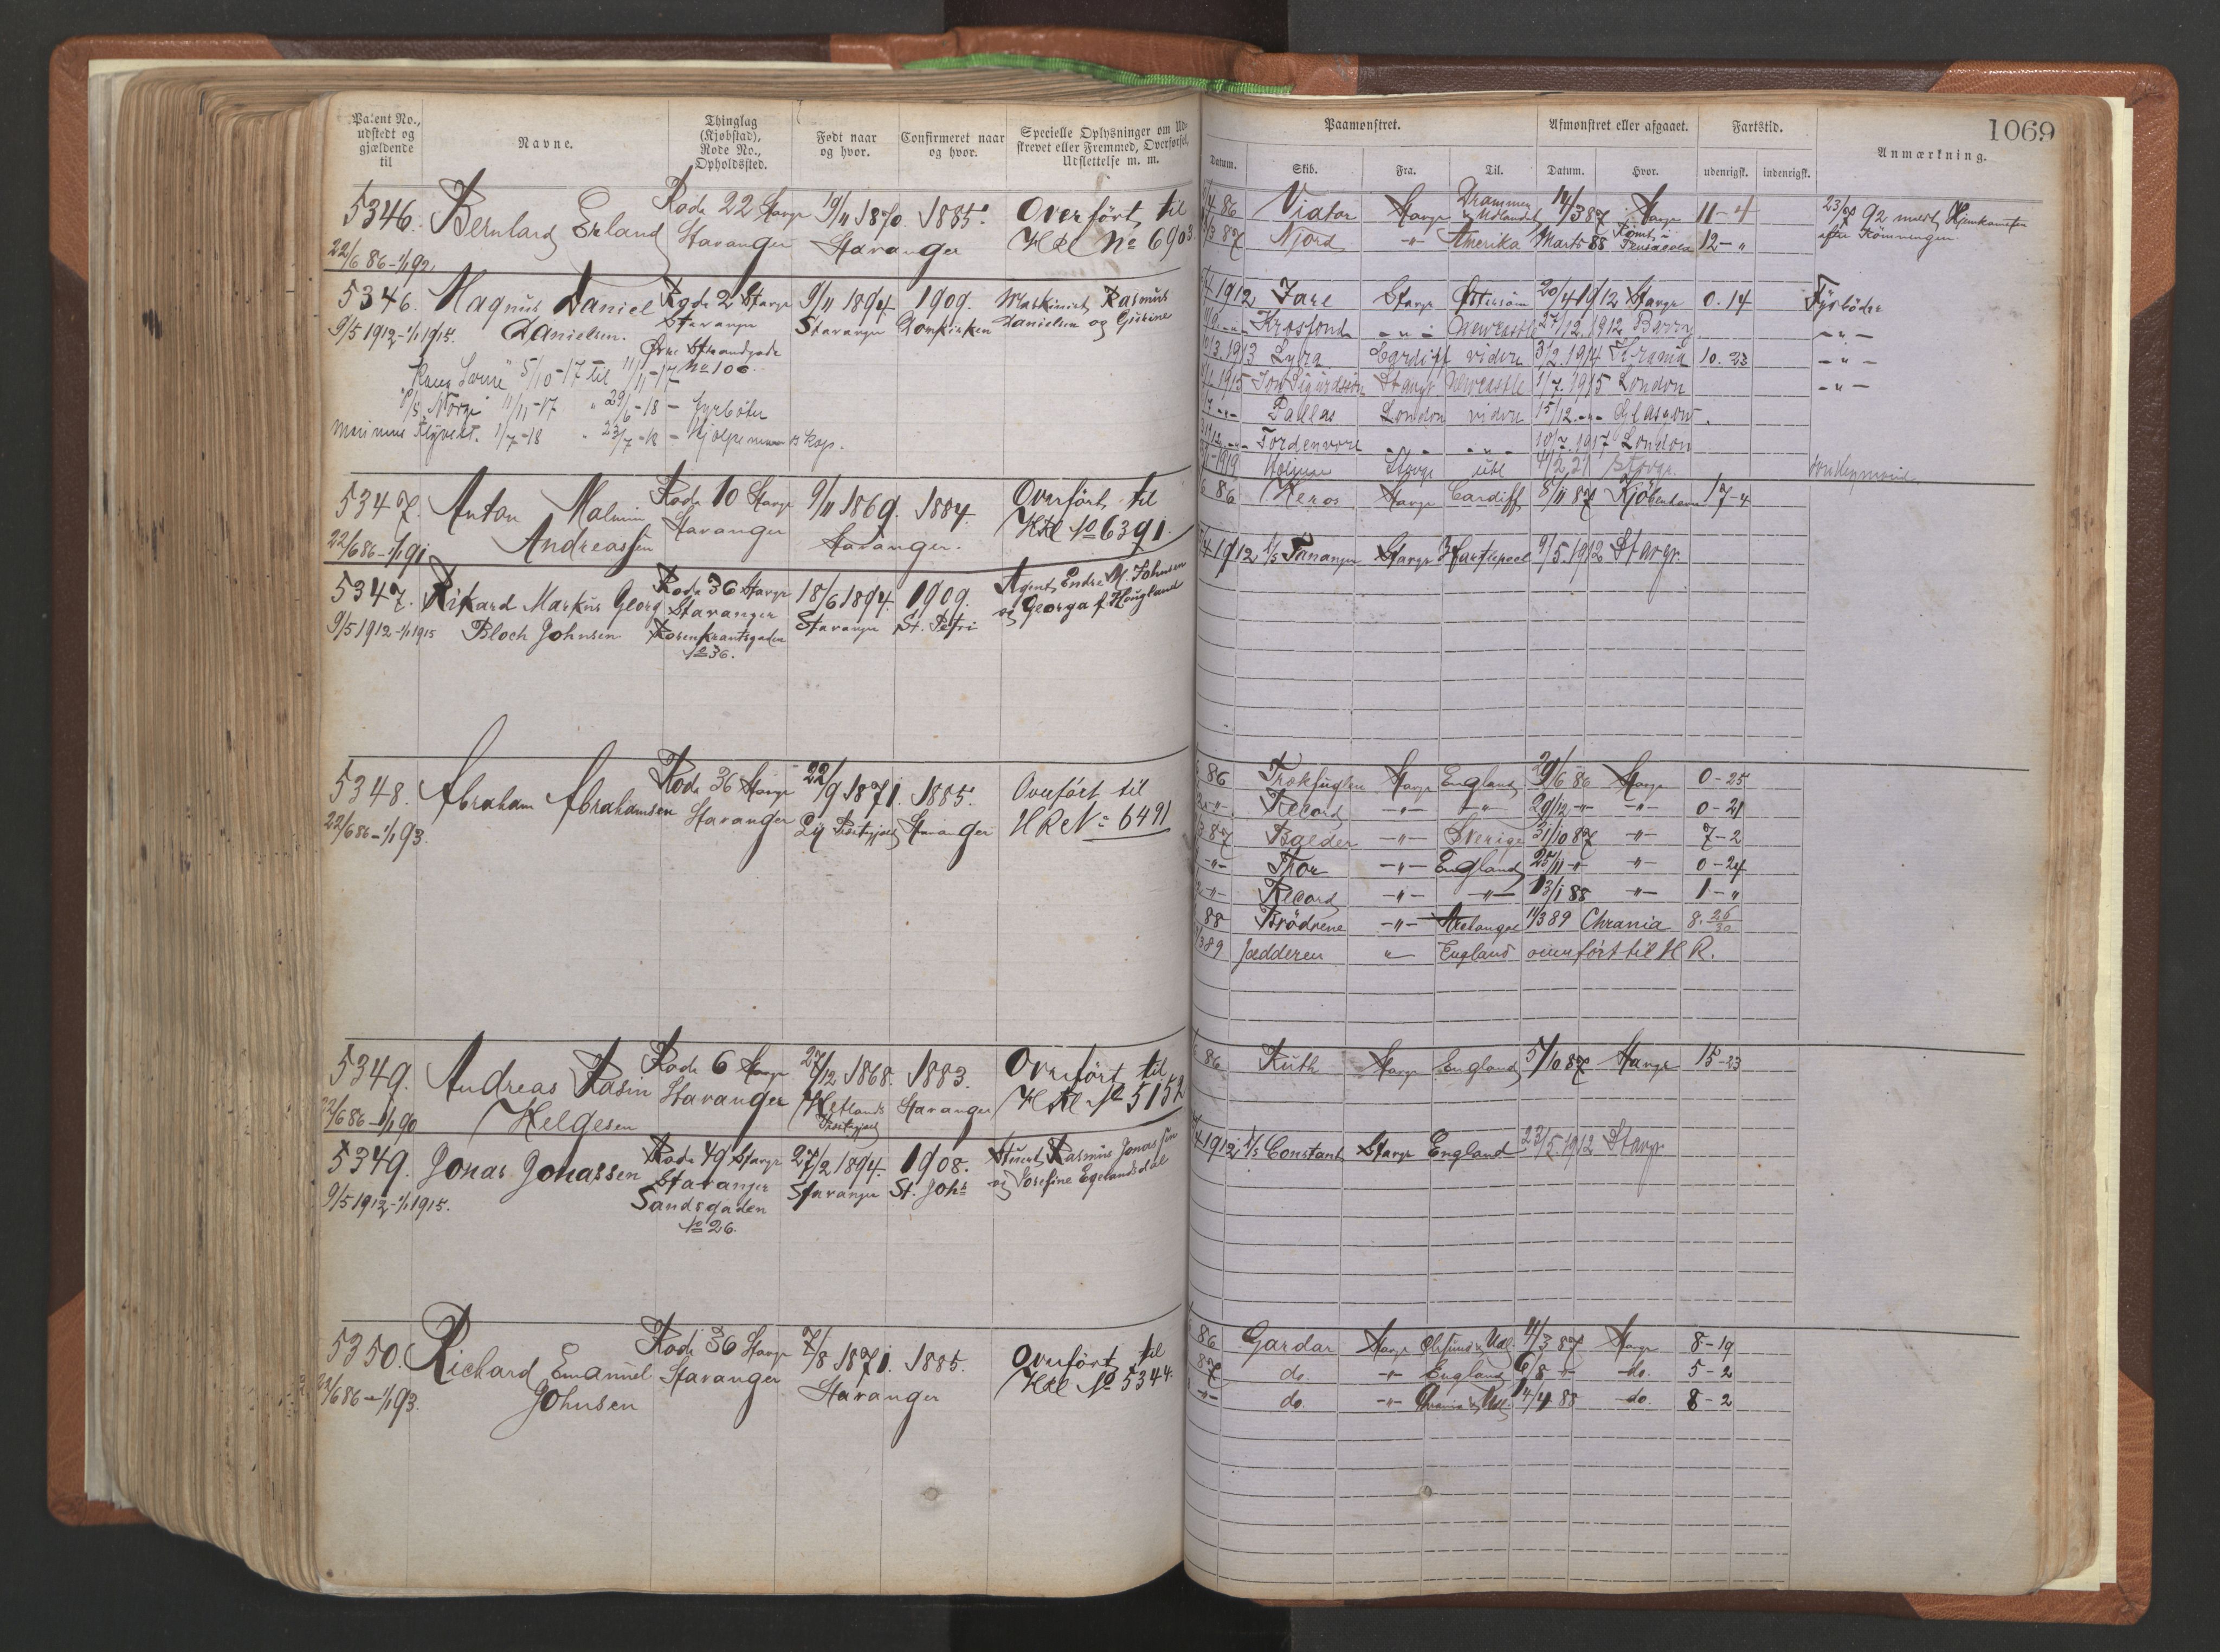 Patent No., udstedt og gjældende til
Navne.
Thinglag (Kjøbstad), Rode No., Opholdssted.
Født naar og hvor.
Confirmeret naar og hvor.
Specielle Oplysninger om Udstrevet eller Fremmed, Overførsel, Udslettelse m. m.
Paamønstret.
Afmønstret eller afgaaet.
Fartstid.
Anmærkning.
1069
Datum.
Skib.
Fra.
Til.
Datum.
Hvor.
udenrigsk.
indenrigsk.
5346. Bernhard Erland Rode 22 Stavgr 19/11 1870. 1885. Overført til
22/6 86-1/1 92. Stavanger Stavanger HRl No 6903
86 Viator Stavgr Drammen & Udlandet 14/3 87 Stavgr 11-4 23/7 92 meldt Hjemkommen
87 Njord -"- Amerika Marts 88 Rømt i Pensacola 12-" efter Rømningen
5346. Magnus Daniel Rode 2 Stavgr 9/11 1894. 1909. Maskinist Rasmus
9/5 1912-1/1 1915. Danielsen. Stavanger Stavanger Domkirken Danielsen og Gurine
Øvre Strandgade
No 100.
5/10-17 til 11/11-17
"Norge" 11/11-17 " 29/6-18 - Fyrbøter
1/7-18 " 23/7-18 -
4 1912 Jarl Stavgr Østersöen 20/4 1912 Stavgr 0.14 Fyrböder
Krosfond -"- Newcastle 27/12.1912 Barry -"-
3.1913 Lyra Cardiff videre 3/2.1914 Xrania 10.23 -"-
1915 Jon Sigurdsson Stavgr Newcastle 1/7.1915 London -"-
Pallas London videre 15/12.-"- Glasgow
Tordenvore -"- -"- 10/7.1917 London
1919 Stavgr udl 4/2 21 Stavgr.
5347. Anton Malmin Rode 10 Stavgr 9/11 1869. 1884. Overført til
22/6 86-1/1 91 Andreassen Stavanger Stavanger. HRl No 6391.
86 Heros Stavgr Cardiff 8/11 87 Kjöbenhavn 17-4
5347. Rikard Markus Georg Rode 36 Stavgr 18/6 1894. 1909. Agent Endre M. Johnsen
9/5 1912-1/1 1915 Bloch Johnsen Stavanger Stavanger St. Petri og Georga f. Hougland
Rosenkrantsgaden
No 36.
4 1912 S/S Tananger Stavgr Hartlepool 9/5.1912 Stavgr.
5348. Abraham Abrahamsen Rode 36 Stavgr 22/9 1871. 1885. Overført til
22/6 86-1/1 93. Stavanger Lÿ Prestegjæld Stavanger HRl No 6491
86 Trækfuglen Stavgr England 29/6 86 Stavgr 0-25
Record -"- -"- 29/12 -"- -"- 0-21
87 Balder -"- Sverige 31/10 87 -"- 7-2
-"- Thor -"- England 25/11 -"- -"- 0-24
-"- Record -"- -"- 13/1 88 -"- 1-"
88 Brödrene -"- Archangel 11/3 89 Chrania 8.26/30
89 Jædderen " England overført til H R.
5349. Andreas Rasin Rode 6 Stavgr 27/12 1868. 1883. Overført til
22/6 86-1/1 90 Helgesen Stavanger Hetlands Prestegjæld Stavanger HRl No 5152
86 Ruth Stavgr England 5/10 87 Stavgr 15-23
5349. Jonas Jonassen Rode 49 Stavgr 27/2 1894. 1908. Stuert Rasmus Jonassen
9/5 1912-1/1 1915. Stavanger Stavanger St. Johs og Josefine Egelandsdal
Sandsgaden
No 26.
4 1912 S/S Constant Stavgr England 23/5.1912 Stavgr
5350. Richard Emanuel Rode 36 Stavgr 7/8 1871. 1885. Overført til
22/6 86-1/1 93. Johnsen Stavanger Stavanger HRl No 5344.
86 Gardar Stavgr Udl. 11/3 87 Stavgr 8-19
87 do. -"- England 6/8 -"- do. 5-2
-"- do. -"- Chrania & Udl. 14/4 88 do. 8-2